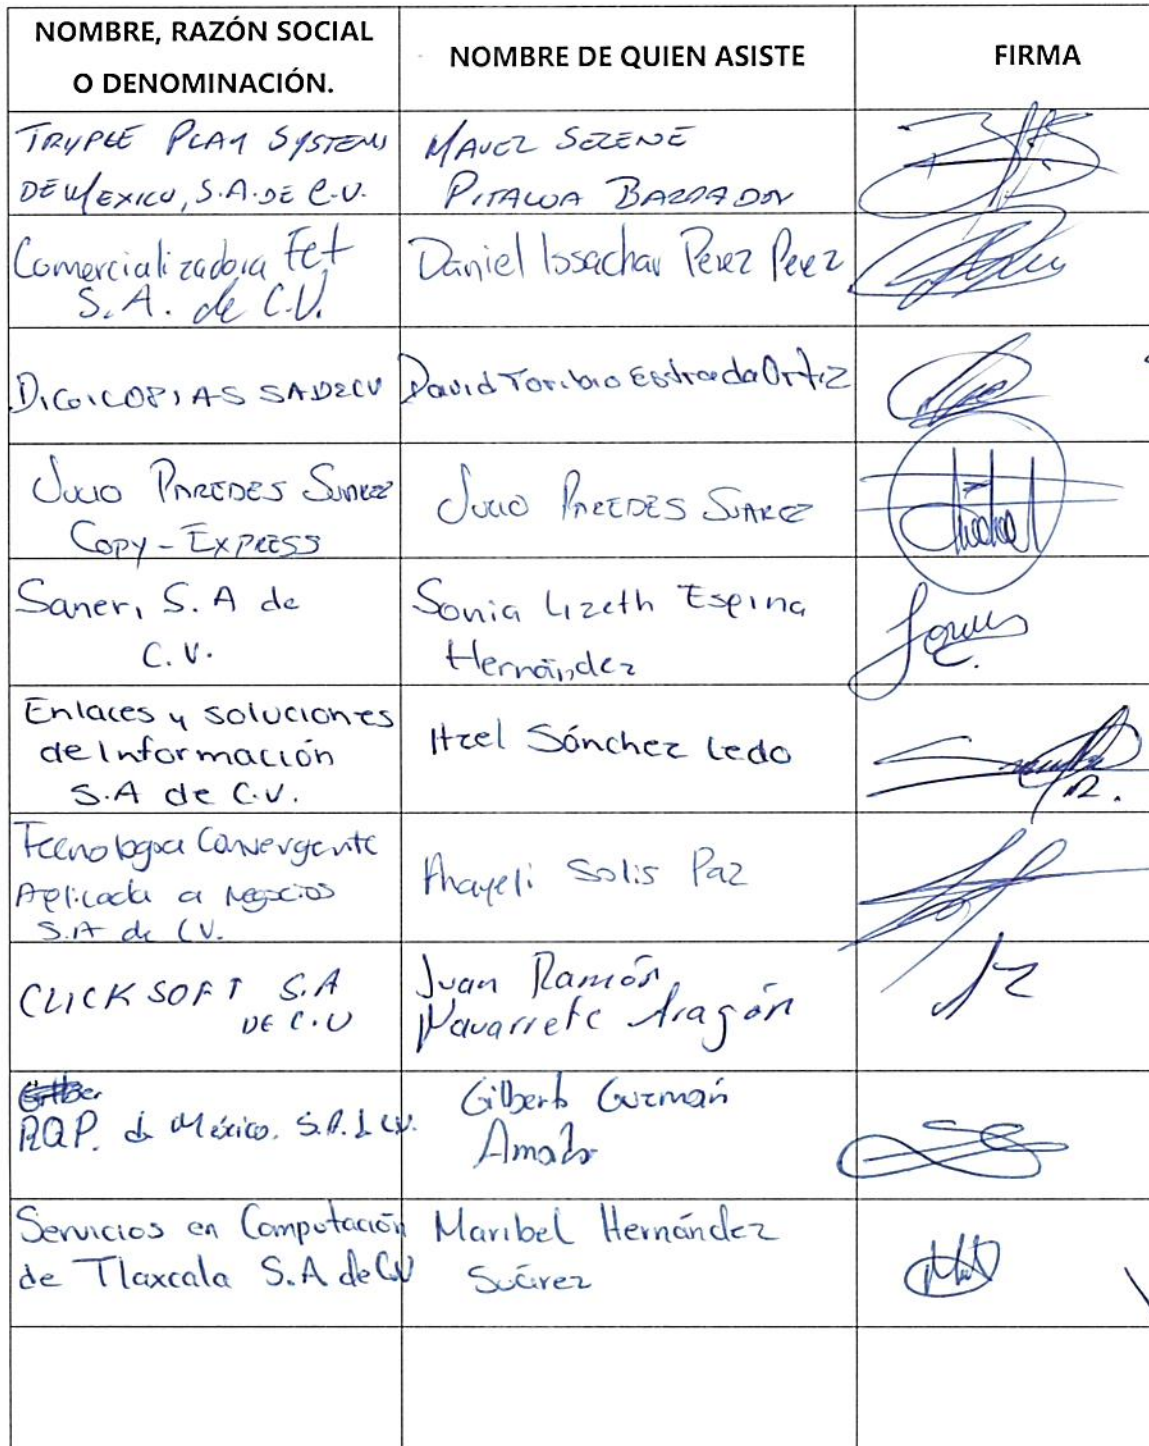 NOMBRE, RAZÓN SOCIAL
O DENOMINACIÓN.
NOMBRE DE QUIEN ASISTE
FIRMA
TRYPLE PLAY SYSTEMS
DE MEXICO, S.A. DE C.V.
PITALUA BARRADON
Comercializadora Fet
S.A. de C.V.
Daniel Issachar Perez Perez
DIGICOPIAS SADECV
David Toribio Estrada Ortiz
JULIO PAREDES SUAREZ
COPY-EXPRESS
JULIO PAREDES SUAREZ
Saner, S. A de
C. V.
Sonia Lizeth Espina
Hernández
Enlaces y soluciones
de Información
S.A de C.V.
Itzel Sánchez Ledo
Tecnologia Convergente
Aplicada a Negocios
S.A de CV.
Anayeli Solis Paz
CLICKSOFT S.A
DE C.V
Juan Ramón
Navarrete Aragón
RQP. de México. S.A. de CV.
Gilberto Guzmán
Amador
Servicios en Computación
de Tlaxcala S.A de CV
Maribel Hernández
Suárez